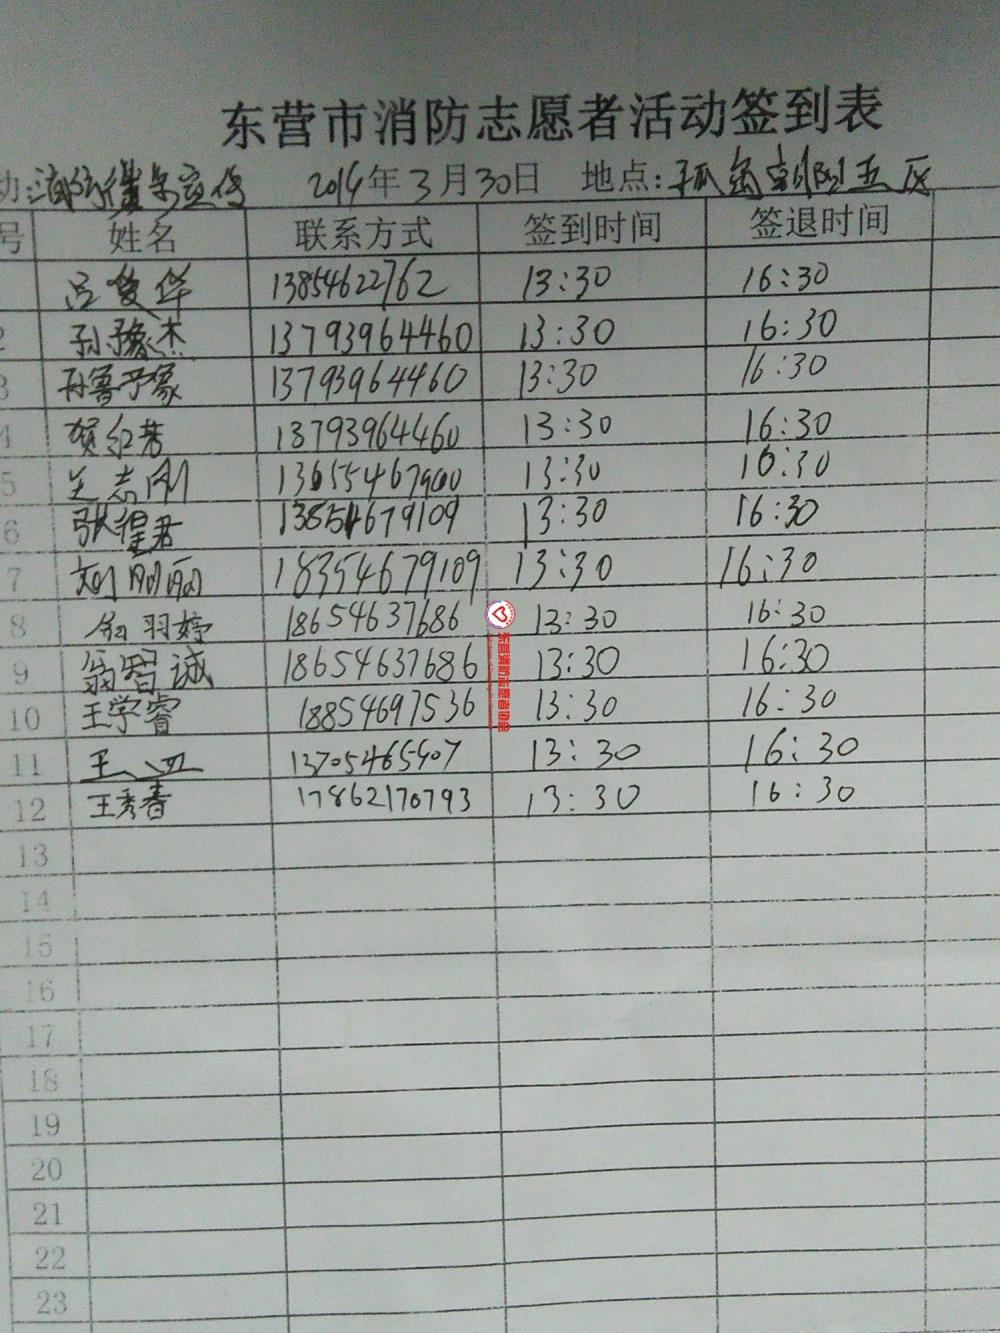 东营市消防志愿者活动签到表
动:消防 宣传 2014年3月30日 地点:孤岛朝阳五区
号 姓名 联系方式 签到时间 签退时间
吕俊华 13854622762 13:30 16:30
2 孙豫杰 13793964460 13:30 16:30
3 孙鲁予豫 13793964460 13:30 16:30
4 贺红芳 13793964460 13:30 16:30
5 志刚 13:30 16:30
6 张 君 13854679109 13:30 16:30
7 刘丽丽 18354679109 13:30 16:30
8 翁羽婷 18654637686 13:30 16:30
9 翁智诚 18654637686 13:30 16:30
10 王学睿 18854697536 13:30 16:30
11 王 13705465407 13:30 16:30
12 王秀春 17862170793 13:30 16:30
东营消防志愿者协会
13
14
15
16
17
18
19
20
21
22
23